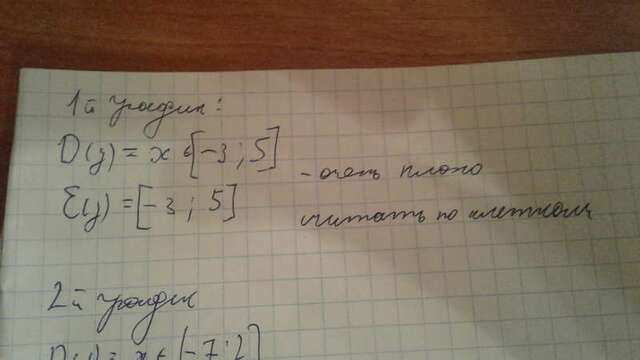 1й график:
D(y) = x ∈ [-3; 5]
- очень плохо
E(y) = [-3; 5]
считать по клеткам
2й график
D(y) = x ∈ [-7; 2]